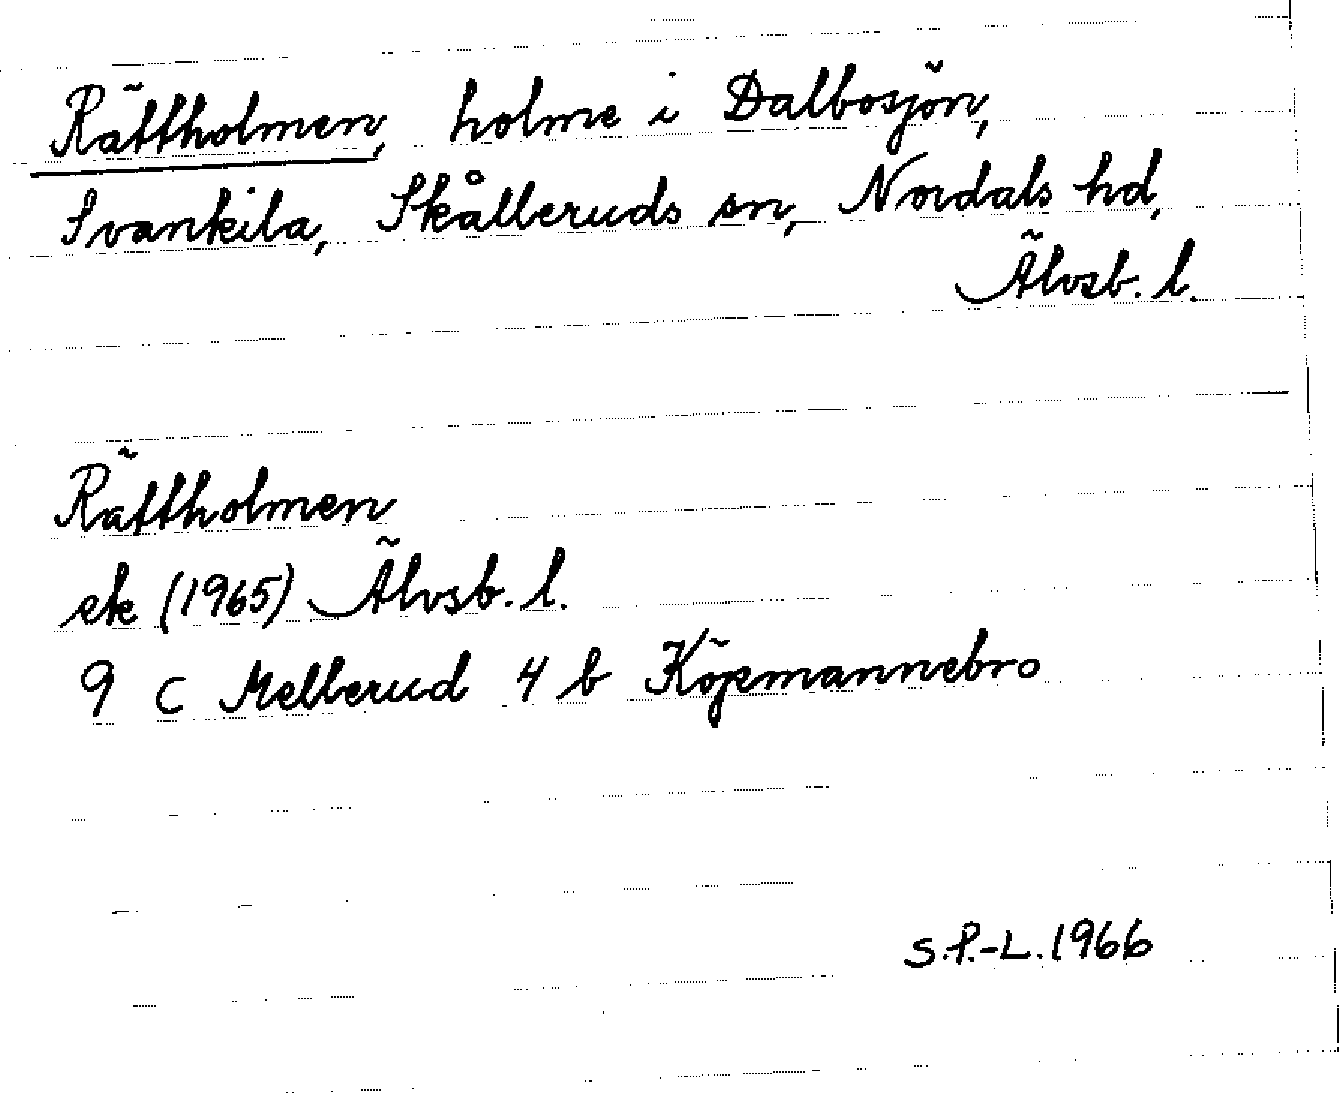 Rättholmen, holme i Dalbosjön,
Svankila, Skålleruds sn, Nordals hd,
Älvsb. l.
Rättholmen
ek (1965) Älvsb. l.
9 C Mellerud 4 b Köpmannebro
S.P.-L. 1966